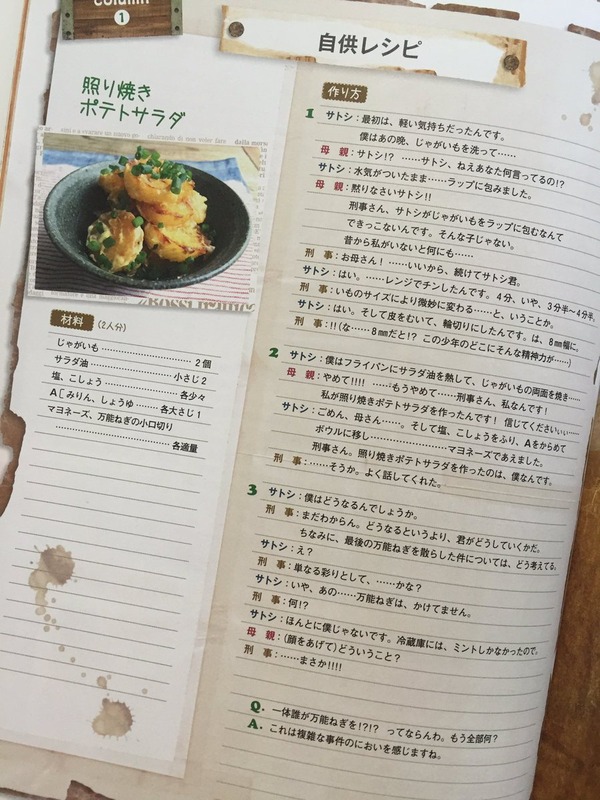 column
1
自供レシピ
照り焼き
ポテトサラダ
材料 (2人分)
じゃがいも………………………2個
サラダ油……………………小さじ2
塩、こしょう…………………各少々
A[みりん、しょうゆ………各大さじ1
マヨネーズ、万能ねぎの小口切り
………………………………各適量
作り方
1 サトシ：最初は、軽い気持ちだったんです。
僕はあの晩、じゃがいもを洗って……
母 親：サトシ!? ……サトシ、ねえあなた何言ってるの!?
サトシ：水気がついたまま……ラップに包みました。
母 親：黙りなさいサトシ!!
刑事さん、サトシがじゃがいもをラップに包むなんて
できっこないんです。そんな子じゃない。
昔から私がいないと何にも……
刑 事：お母さん! ……いいから、続けてサトシ君。
サトシ：はい。……レンジでチンしたんです。4分、いや、3分半〜4分半。
刑 事：いものサイズにより微妙に変わる……と、いうことか。
サトシ：はい。そして皮をむいて、輪切りにしたんです。は、8㎜幅に。
刑 事：!!(な……8㎜だと!? この少年のどこにそんな精神力が……)
2 サトシ：僕はフライパンにサラダ油を熱して、じゃがいもの両面を焼き……
母 親：やめて!!!! ……もうやめて……刑事さん、私なんです!
私が照り焼きポテトサラダを作ったんです! 信じてくださいぃぃ……
サトシ：ごめん、母さん……。そして塩、こしょうをふり、Aをからめて
ボウルに移し…………………マヨネーズであえました。
刑事さん。照り焼きポテトサラダを作ったのは、僕なんです。
刑 事：……そうか。よく話してくれた。
3 サトシ：僕はどうなるんでしょうか。
刑 事：まだわからん。どうなるというより、君がどうしていくかだ。
ちなみに、最後の万能ねぎを散らした件については、どう考えてる。
サトシ：え?
刑 事：単なる彩りとして、……かな?
サトシ：いや、あの……万能ねぎは、かけてません。
刑 事：何!?
サトシ：ほんとに僕じゃないです。冷蔵庫には、ミントしかなかったので。
母 親：(顔をあげて)どういうこと?
刑 事：……まさか!!!!
Q. 一体誰が万能ねぎを!?!? ってならんわ。もう全部何?
A. これは複雑な事件のにおいを感じますね。